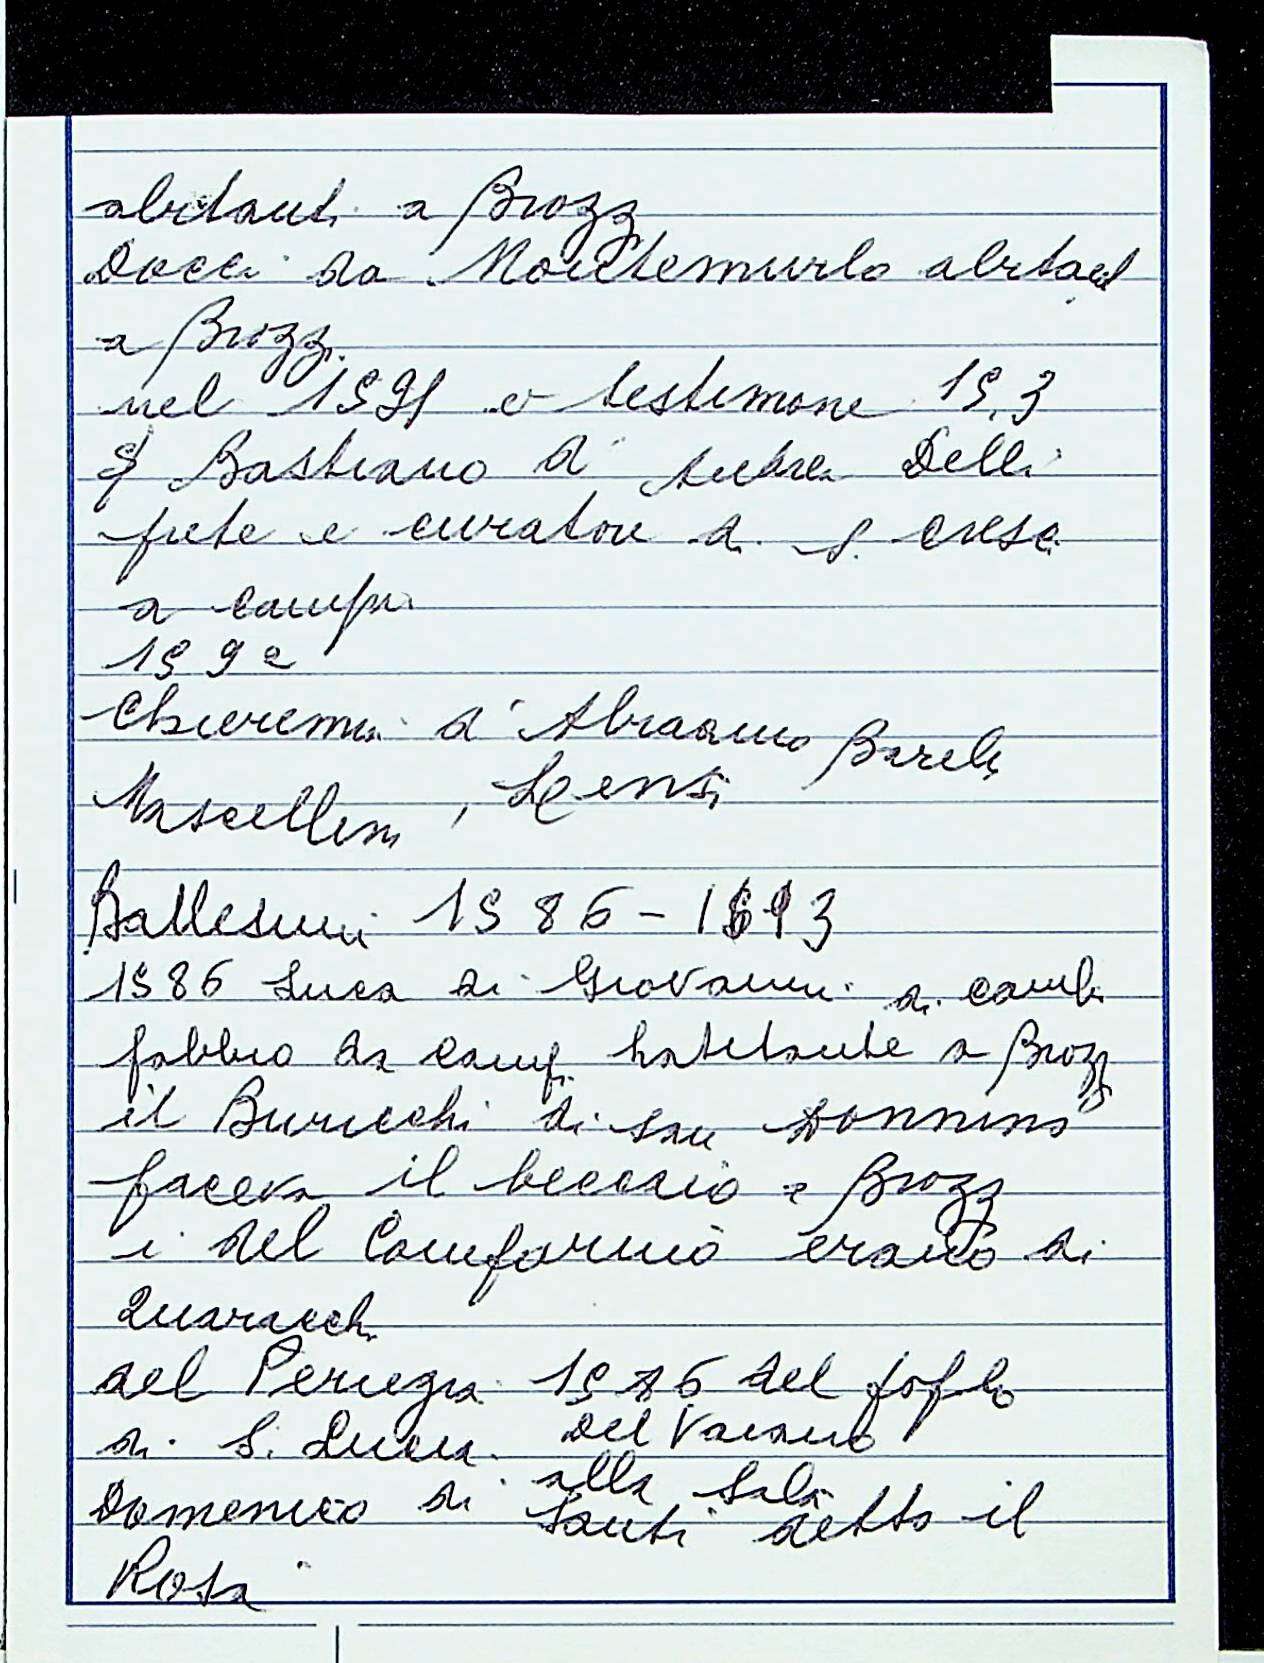 abitanti a Brozzi
Docci da Montemurlo abitant
a Brozzi
nel 1591 e testimone 15.3
S Bastiano d' Andrea Delli
prete e curatore di S. Cresc
a campi
1592
Chieremi d' Abraamo Bareli
Mascellini, Lensi
Ballesini 1586 - 1693
1586 Luca di Giovanni di cambi
fabbro da campi habitante a Brozzi
il Buricchi di san Donnino
faceva il beccaio a Brozzi
i del Campormo erano di
Quaracchi
del Perugia 1586 del popolo
di S. Lucia. Del Vacano
alla Sala
Domenico di Santi detto il
Rosa